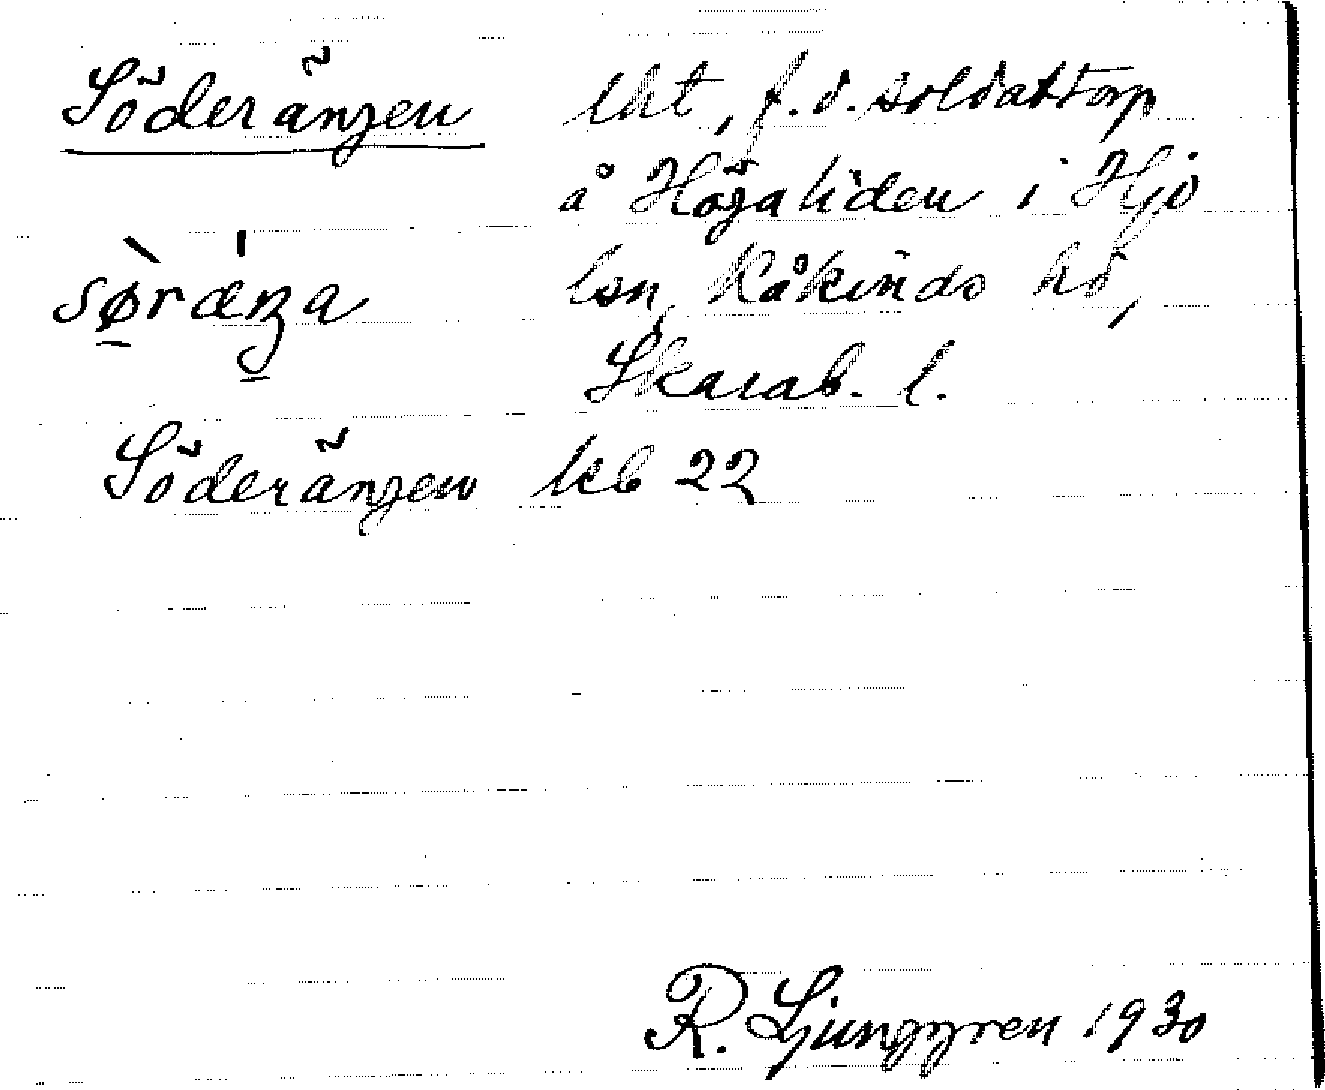 Söderängen lht, f.d. soldattorp
å Högaliden i Hjo
sø̀ræ̍ŋa lsn, Kåkinds hd,
Skarab. l.
Söderängen lkb 22
R. Ljunggren 1930